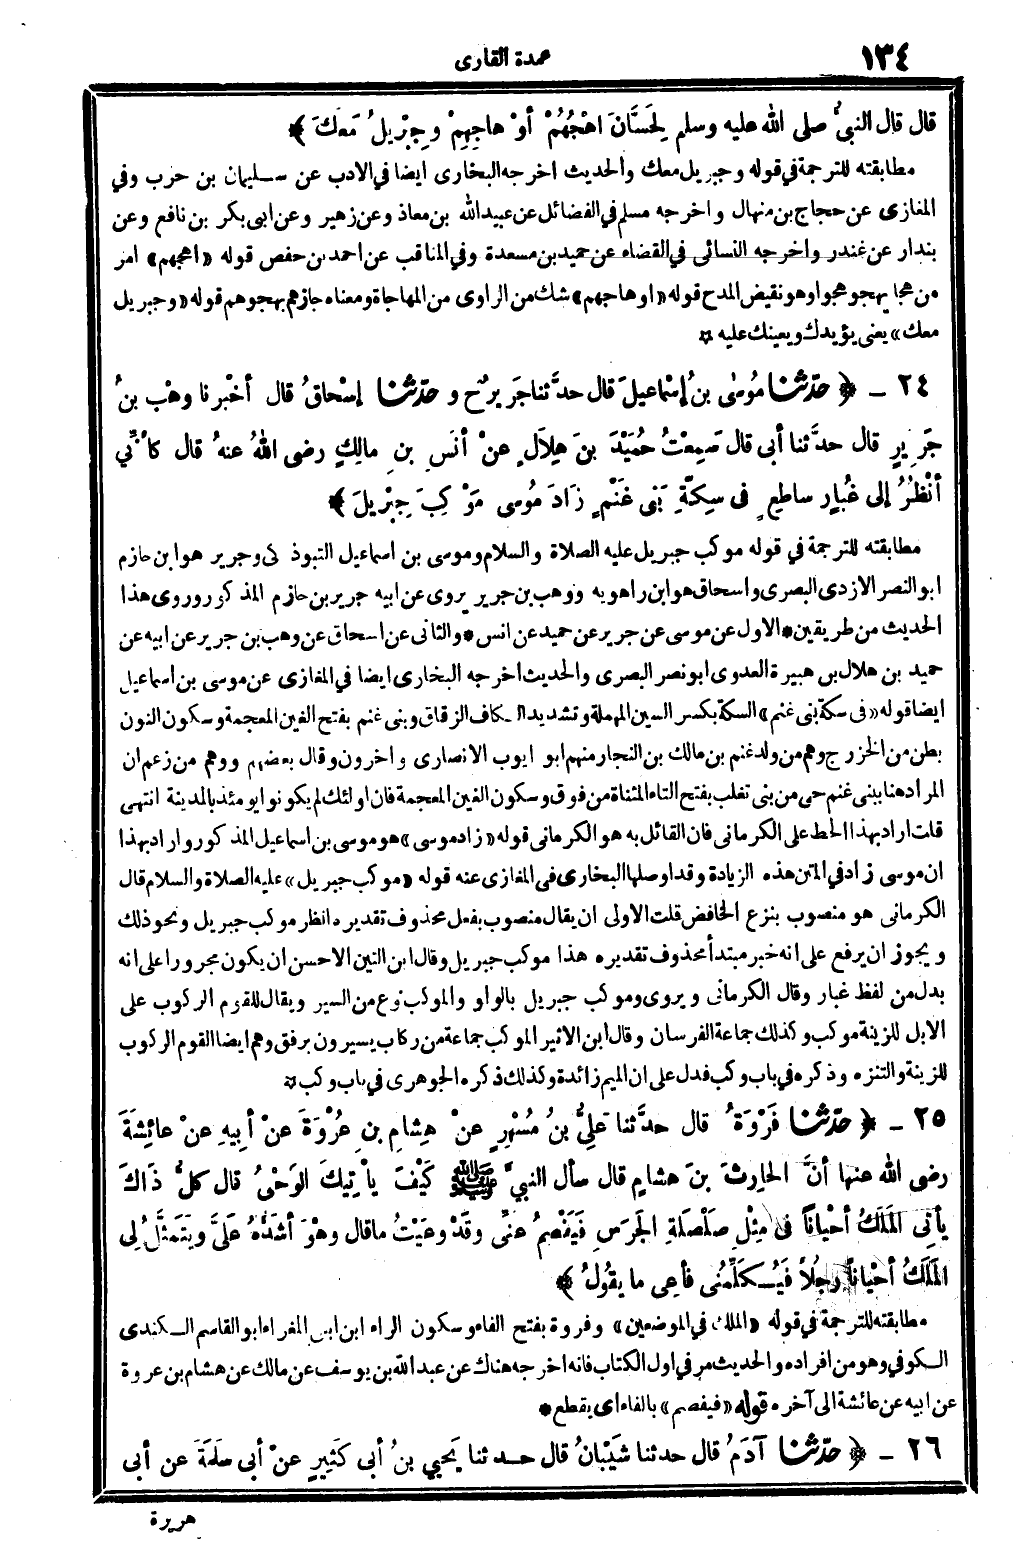 ١٣٤
عمدة القارى
قال قال النبيُّ صلى الله عليه وسلم لِحَسَّانَ اهْجُهُمْ أوْ هاجِهِمْ وجِبْرِيلُ مَعَكَ ﴾
مطابقته للترجمة في قوله وجبريل معك والحديث اخرجه البخارى ايضا في الادب عن سليمان بن حرب وفي
المغازى عن حجاج بن منهال واخرجه مسلم في الفضائل عن عبيد الله بن معاذ وعن زهير وعن ابى بكر بن نافع وعن
بندار عن غندر واخرجه النسائى في القضاء عن حميد بن مسعدة وفي المناقب عن احمد بن حفص قوله «اهجهم» امر
من هجا يهجو هجوا وهو نقيض المدح قوله «او هاجهم» شك من الراوى من المهاجاة ومعناه جازهم بهجوهم قوله «وجبريل
معك» يعنى يؤيدك ويعينك عليه ۞
٢٤ - ﴿ حدّثنا مُوسٰى بنُ إسْماعيلَ قال حدَّثنا جَرِيرٌ ح و حدّثنا إسْحاقُ قال أخْبرنا وهْب بنُ
جَرِيرٍ قال حدَّثنا أبى قال سَمِعْتُ حُمَيْدَ بنَ هِلاَلٍ عنْ أنَسِ بنِ مالِكٍ رضى اللهُ عنهُ قال كأنِّي
أنْظُرُ إلى غُبارٍ ساطِعٍ فى سِكَّةِ بَنِى غَنْمٍ زَادَ مُوسى مَوْكِبَ جِبْرِيلَ ﴾
مطابقته للترجمة في قوله موكب جبريل عليه الصلاة والسلام وموسى بن اسماعيل التبوذكى وجرير هو ابن حازم
ابو النصر الازدى البصرى واسحاق هو ابن راهويه ووهب بن جرير يروى عن ابيه جرير بن حازم المذكور وروى هذا
الحديث من طريقين * الاول عن موسى عن جرير عن حميد عن انس * والثانى عن اسحاق عن وهب بن جرير عن ابيه عن
حميد بن هلال بن هبيرة العدوى ابو نصر البصرى والحديث اخرجه البخارى ايضا في المغازى عن موسى بن اسماعيل
ايضا قوله «فى سكة بنى غنم» السكة بكسر السين المهملة وتشديد الكاف الزقاق وبنى غنم بفتح الغين المعجمة وسكون النون
بطن من الخزرج وهم من ولد غنم بن مالك بن النجار منهم ابو ايوب الانصارى واخرون وقال بعضهم ووهم من زعم ان
المراد هنا ببنى غنم حى من بنى تغلب بفتح التاء المثناة من فوق وسكون الغين المعجمة فان اولئك لم يكونوا يومئذ بالمدينة انتهى
قلت اراد بهذا الحط على الكرمانى فان القائل به هو الكرمانى قوله «زاد موسى» هو موسى بن اسماعيل المذكور واراد بهذا
ان موسى زاد في المتن هذه الزيادة وقد اوصلها البخارى فى المغازى عنه قوله «موكب جبريل» عليه الصلاة والسلام قال
الكرمانى هو منصوب بنزع الخافض قلت الاولى ان يقال منصوب بفعل محذوف تقديره انظر موكب جبريل ونحو ذلك
ويجوز ان يرفع على انه خبر مبتدأ محذوف تقديره هذا موكب جبريل وقال ابن التين الاحسن ان يكون مجرورا على انه
بدل من لفظ غبار وقال الكرمانى ويروى وموكب جبريل بالواو والموكب نوع من السير ويقال للقوم الركوب على
الابل للزينة موكب وكذلك جماعة الفرسان وقال ابن الاثير الموكب جماعة من ركاب يسيرون برفق وهم ايضا القوم الركوب
للزينة والتنزه وذكره في باب وكب فدل على ان الميم زائدة وكذلك ذكره الجوهرى في باب وكب ۞
٢٥ - ﴿ حدّثنا فَرْوَةُ قال حدَّثنا عَلِيُّ بنُ مُسْهِرٍ عنْ هِشامِ بنِ عُرْوَةَ عنْ أبِيهِ عنْ عائِشَةَ
رضى الله عنها أنَّ الحارِثَ بنَ هشامٍ قال سألَ النبىَّ ﷺ كَيْفَ يأتِيكَ الوَحْىُ قال كلُّ ذَاكَ
يأتى المَلَكُ أحْياناً فى مِثْلِ صَلْصَلَةِ الجَرَسِ فَيَفْصِمُ عنِّى وقَدْ وعَيْتُ ما قال وهْوَ أشَدُّهُ عَلَيَّ ويَتَمَثَّلُ لِى
المَلَكُ أحْياناً رجُلاً فَيُكَلِّمُنِى فأعِى ما يقُولُ ﴾
مطابقته للترجمة في قوله «الملك في الموضعين» وفروة بفتح الفاء وسكون الراء ابن ابى المغراء ابو القاسم الكندى
الكوفى وهو من افراده والحديث مر في اول الكتاب فانه اخرجه هناك عن عبد الله بن يوسف عن مالك عن هشام بن عروة
عن ابيه عن عائشة الى آخره قوله «فيفصم» بالفاء اى يقطع *
٢٦ - ﴿ حدّثنا آدَمُ قال حدثنا شَيْبانُ قال حدثنا يَحْيي بنُ أبى كَثِيرٍ عنْ أبى سلَمَةَ عن أبى
هريرة